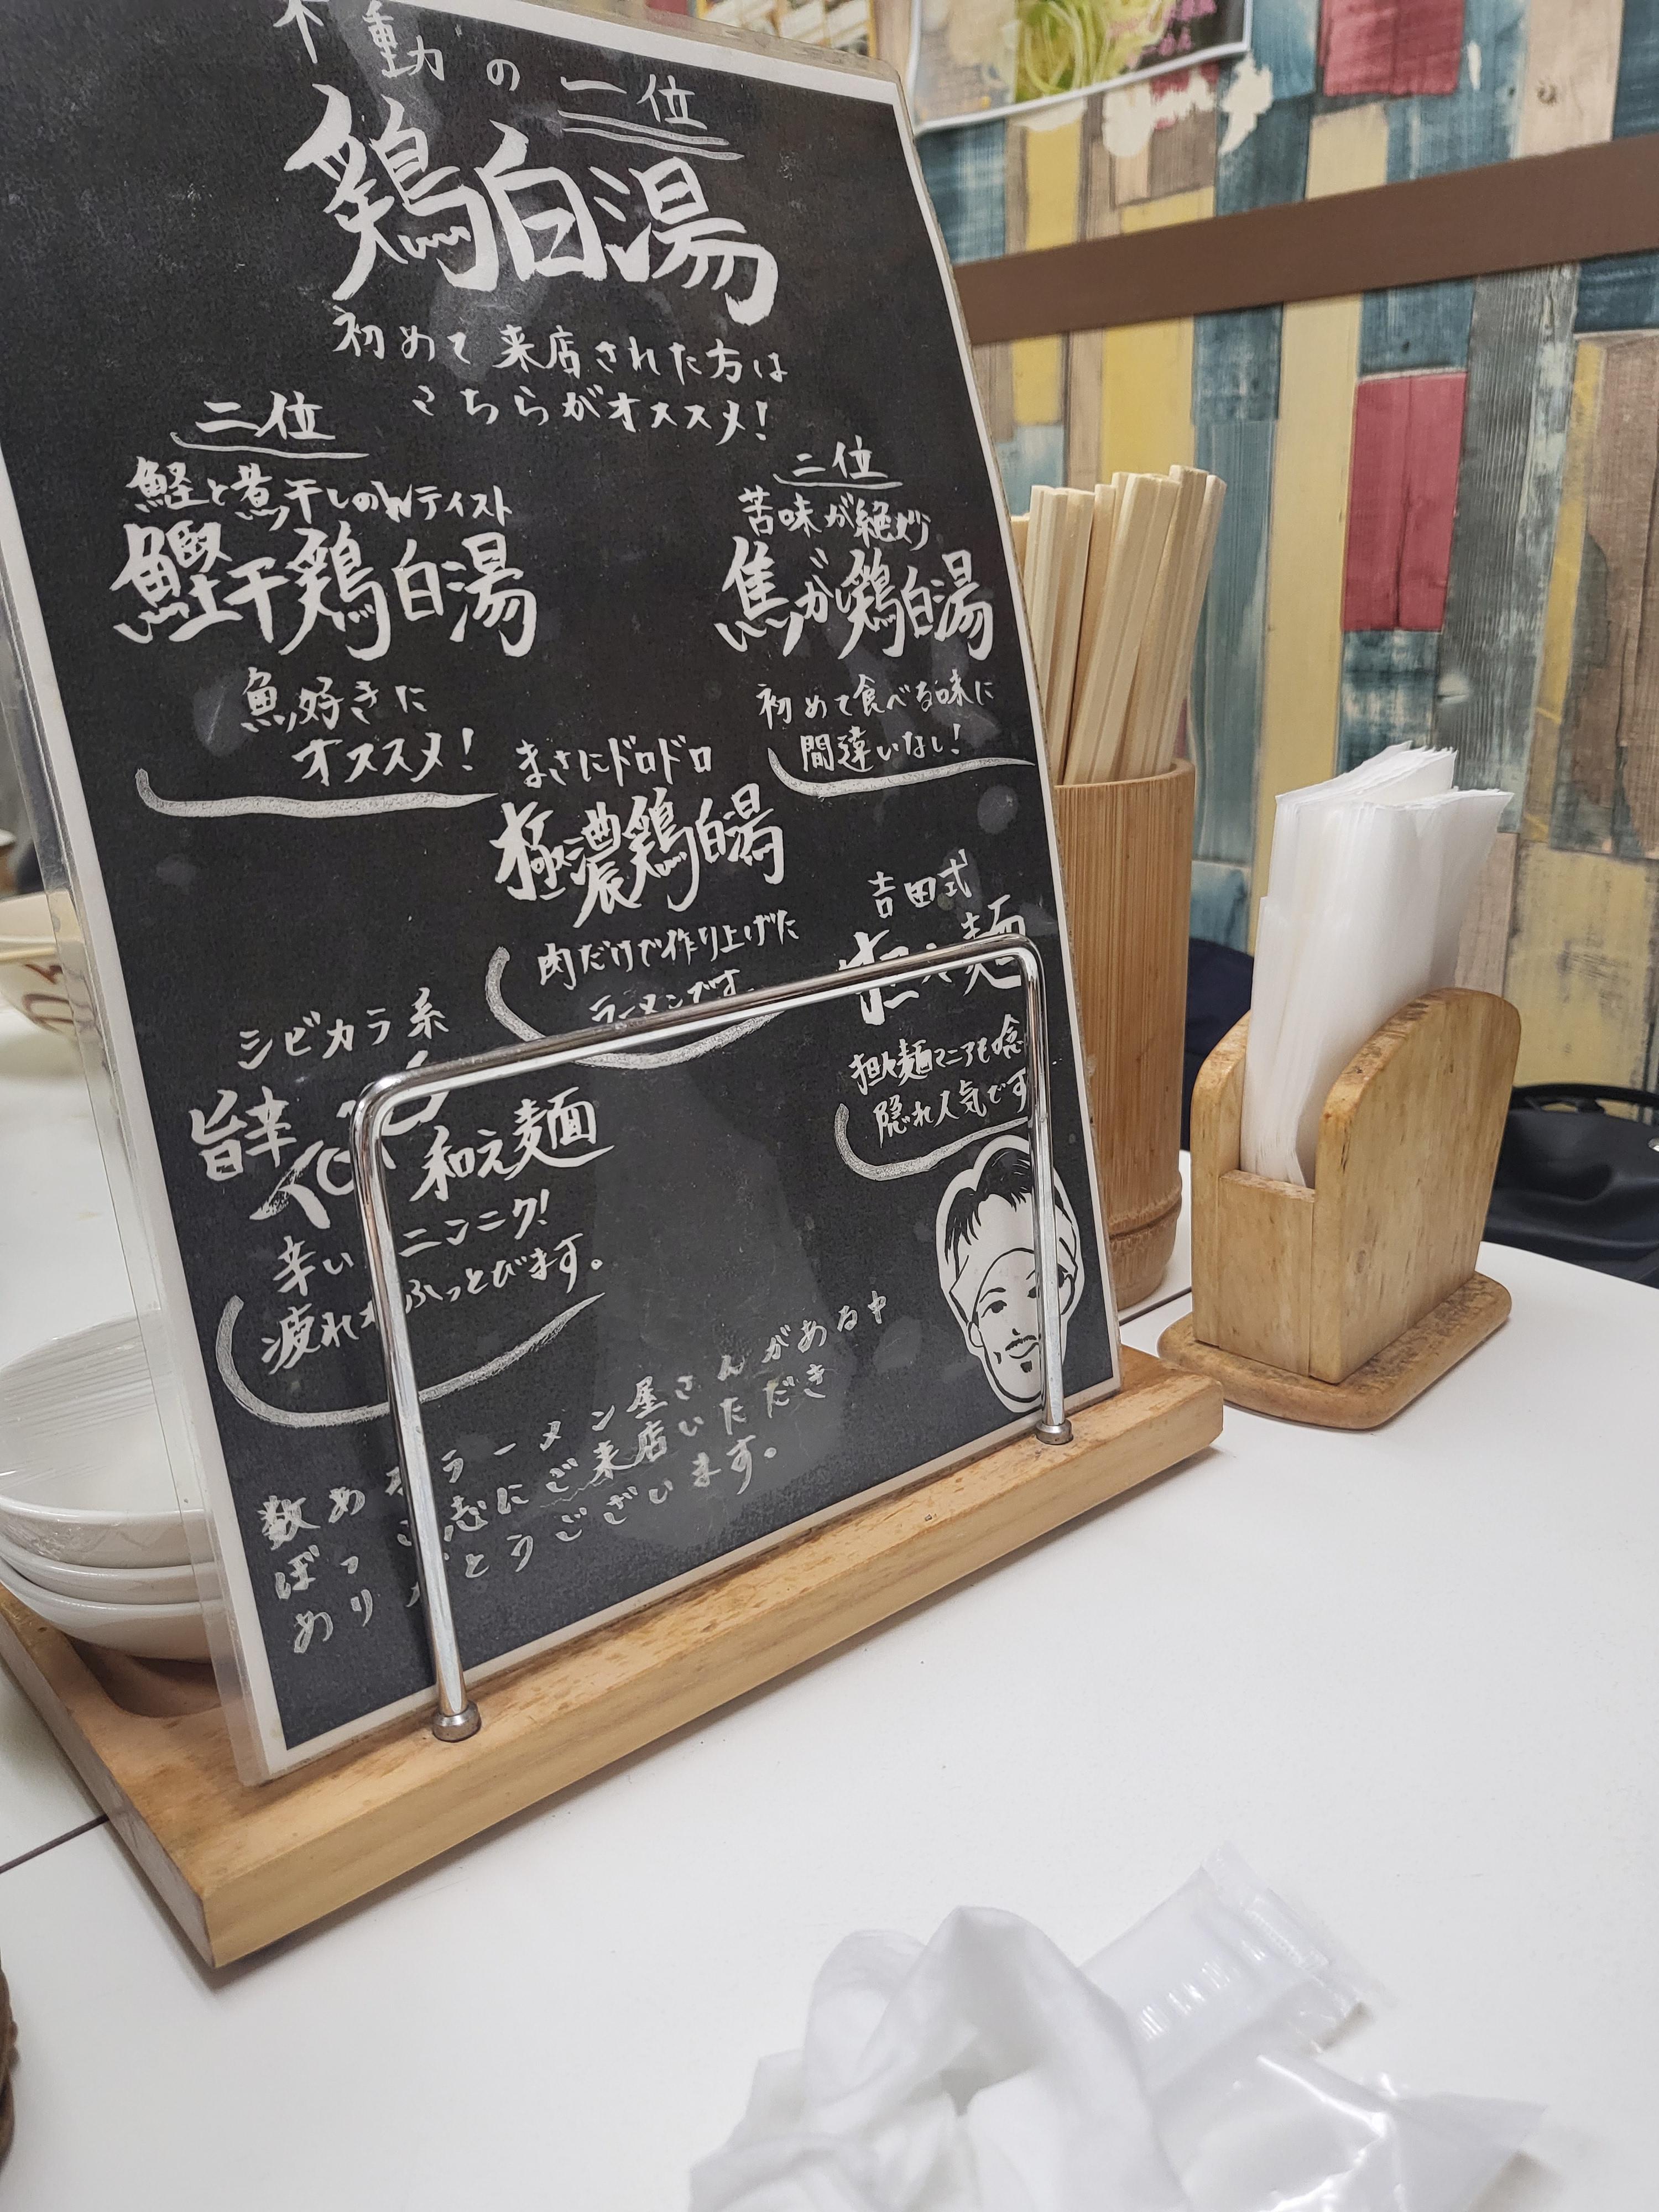 動の一位
鶏白湯
初めて来店された方は
こちらがオススメ!
二位
鰹と煮干しのWテイスト
鰹干鶏白湯
魚好きに
オススメ!
二位
苦味が絶妙
焦がし鶏白湯
初めて食べる味に
間違いなし!
まさにドロドロ
極濃鶏白湯
肉だけで作り上げた
ラーメンです。
吉田式
担々麺
担々麺マニアも唸
隠れ人気です
シビカラ系
旨辛
和え麺
辛い ニンニク!
疲れ ふっとびます。
数あ ラーメン屋さんがある中
ぼっ 志にご来店いただき
あり とうございます。